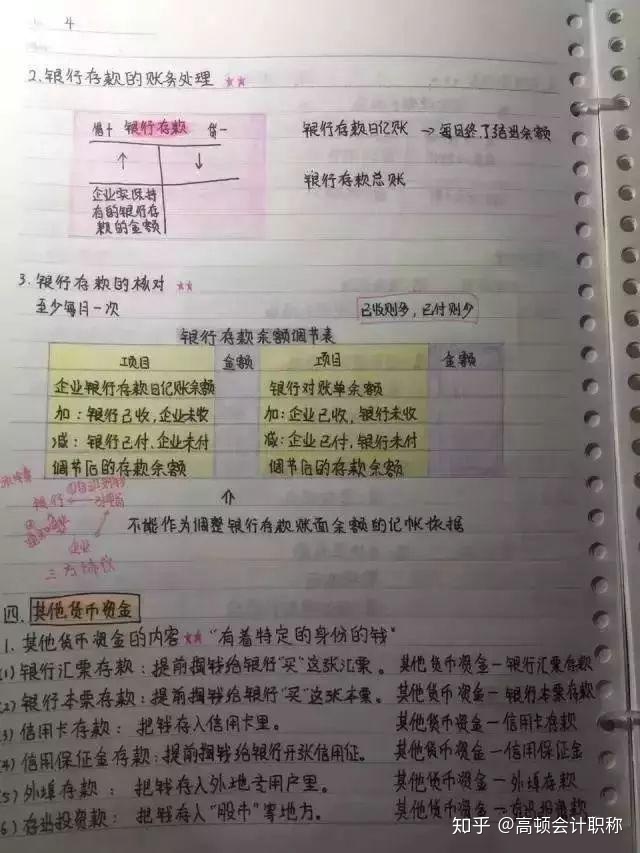 4
2.银行存款的账务处理 ★★
借+ 银行存款 贷- 银行存款日记账 → 每日终了结出余额
↑ ↓
银行存款总账
企业实际持
有的银行存
款的金额
3.银行存款的核对 ★★
至少每月一次 已收则多,已付则少
银行存款余额调节表
项目 金额 项目 金额
企业银行存款日记账余额 银行对账单余额
加:银行已收,企业未收 加:企业已收,银行未收
减:银行已付,企业未付 减:企业已付,银行未付
调节后的存款余额 调节后的存款余额
银行
企业
三方协议
不能作为调整银行存款账面余额的记帐依据
四.其他货币资金
1.其他货币资金的内容 ★★ "有着特定的身份的钱"
(1)银行汇票存款:提前搁钱给银行"买"这张汇票。 其他货币资金—银行汇票存款
(2)银行本票存款:提前搁钱给银行"买"这张本票。 其他货币资金—银行本票存款
(3)信用卡存款:把钱存入信用卡里。 其他货币资金—信用卡存款
(4)信用保证金存款:提前搁钱给银行开张信用证。 其他货币资金—信用保证金
(5)外埠存款:把钱存入外地专用户里。 其他货币资金—外埠存款
(6)存出投资款:把钱存入"股市"等地方。 其他货币资金—存出投资款
知乎 @高顿会计职称